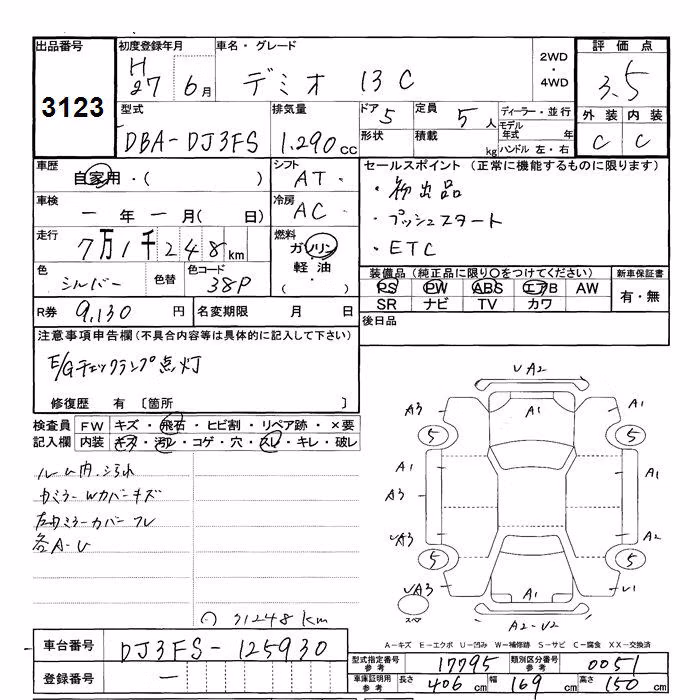 出品番号
3123
初度登録年月
H 27 6月
車名・グレード
デミオ 13C
2WD
・
4WD
評価点
3.5
外装 内装
C C
型式
DBA-DJ3FS
排気量
1.290cc
ドア 5
定員 5人
形状
積載 kg
ディーラー・並行
モデル年式 年
ハンドル 左・右
車歴
自家用・( )
シフト
AT
車検
ー年ー月( 日)
冷房
AC
走行
7万1千248km
燃料
ガソリン
・
軽油
( )
色
シルバー
色替
色コード
38P
R券 9,130 円
名変期限 月 日
セールスポイント(正常に機能するものに限ります)
・初出品
・プッシュスタート
・ETC
装備品(純正品に限り○をつけてください)
PS PW ABS エアB AW
SR ナビ TV カワ
新車保証書
有・無
後日品
注意事項申告欄(不具合内容等は具体的に記入して下さい)
E/Gチェックランプ点灯
修復歴 有 〔箇所 〕
検査員記入欄
FW キズ・飛石・ヒビ割・リペア跡・×要
内装 キズ・汚レ・コゲ・穴・スレ・キレ・破レ
ルーム内 汚れ
カバーキズ
各A-U
71248km
U A2
A3 A1 A3
5 5
A1 A1
A3
UA3 A2
5 5
UA3 A1 U1
スペア
A2-U2
A-キズ E-エクボ U-凹み W-補修跡 S-サビ C-腐食 XX-交換済
車台番号 DJ3FS-125930
登録番号 ー
型式指定番号 参考 17795
類別区分番号 参考 0051
車庫証明用 参考 長さ 406cm 幅 169cm 高さ 150cm